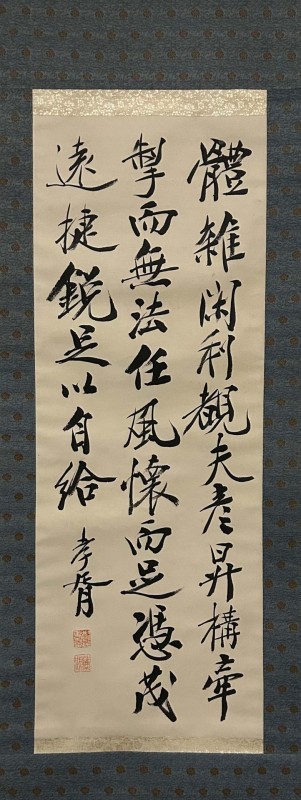 體雜閑利觀夫彥昇構牽
掣而無法任風懷而足憑茂
遠捷銳足以自給
孝胥